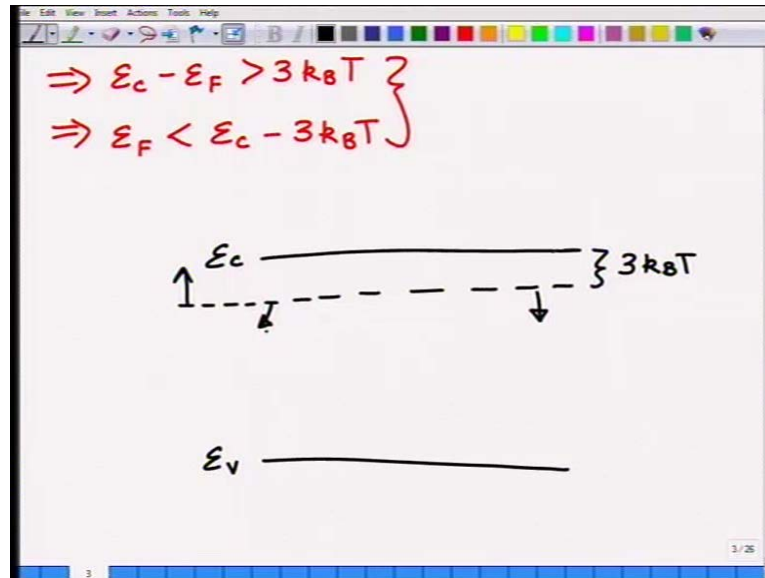 File Edit View Insert Actions Tools Help
B I
⇒ εc - εF > 3kBT
⇒ εF < εc - 3kBT
εc
3kBT
εv
3/26
3